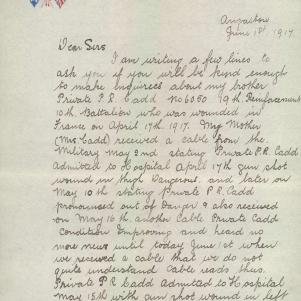 June 1st 1917.
Dear Sirs
I am writing a few lines to
ask you if you will be kind enough
to make inquiries about my brother
Private P.R. Cadd No 6050 19th Reinforcements
10th Battalion who was wounded in
France on April 17th 1917. My Mother
(Mrs Cadd) received a cable from the
Military May 2nd stating Private P.R. Cadd
Admitted to Hospital April 17th gun shot
wound in thigh Dangerous and later on
May 10th stating Private P.R. Cadd
pronounced out of Danger & also received
on May 16th another Cable Private Cadd
Condition Improving and heard no
more news until today June 1st when
we received a cable that we do not
quite understand Cable reads thus.
Private P.R. Cadd Admitted to Hospital
May 15th with gun shot wound in left